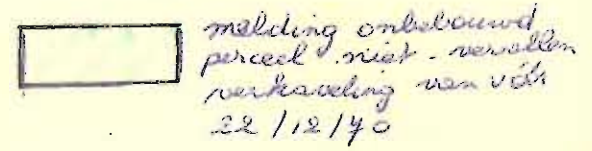 melding onbebouwd
perceel niet-vervallen
verkaveling van vóór
22/12/70